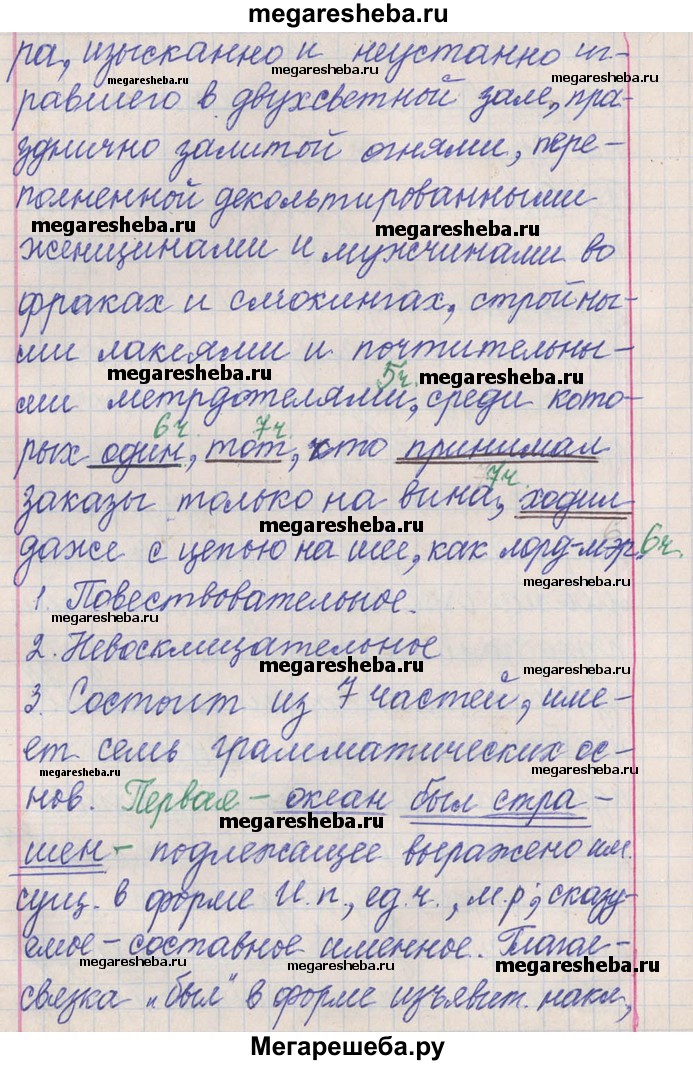 megaresheba.ru
ра, изысканно и неустанно иг-
megaresheba.ru megaresheba.ru megaresheba.ru
равшего в двухсветной зале, пра-
зднично залитой огнями, пере-
полненной декольтированными
megaresheba.ru megaresheba.ru
женщинами и мужчинами во
фраках и смокингах, стройны-
ми лакеями и почтительны-
megaresheba.ru 5ч. megaresheba.ru
ми метрдотелями, среди кото-
6ч. 7ч.
рых один, тот, кто принимал
7ч.
заказы только на вина, ходил
даже с цепью на шее, как лорд-мэр. 6ч.
1. Повествовательное.
megaresheba.ru
2. Невосклицательное
megaresheba.ru megaresheba.ru
3. Состоит из 7 частей, име-
ет семь грамматических ос-
megaresheba.ru megaresheba.ru
нов. Первая - океан был стра-
megaresheba.ru
шен - подлежащее выражено им.
сущ. в форме И.п., ед.ч., м.р; сказу-
емое - составное именное. Глагол-
megaresheba.ru megaresheba.ru megaresheba.ru
связка "был" в форме изъявит. накл.,
Мегарешеба.ру